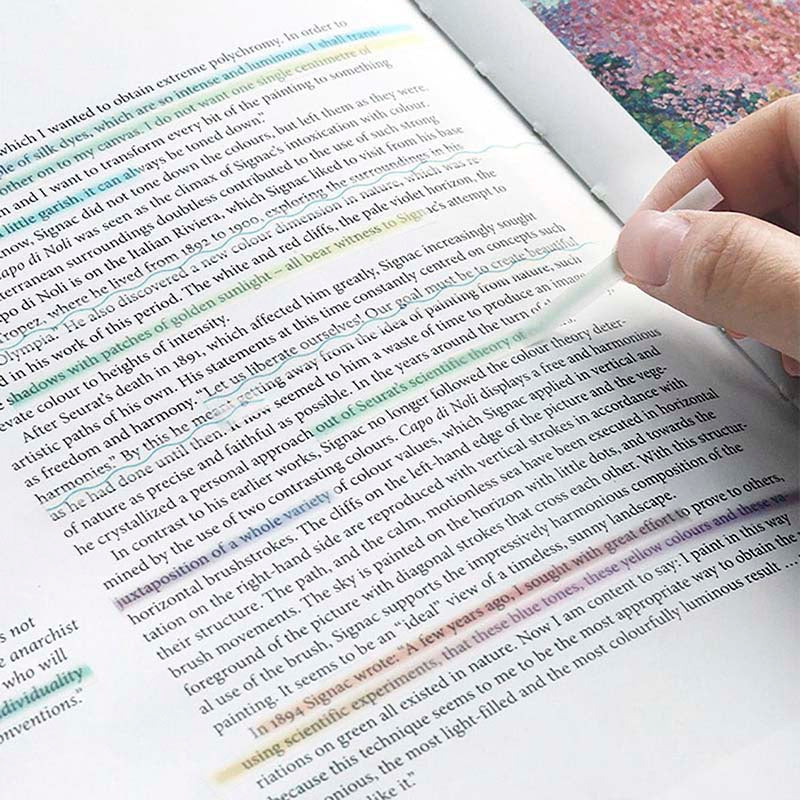 which I wanted to obtain extreme polychromy. In order to
ple of silk dyes, which are so intense and luminous. I shall trans-
other on to my canvas. I do not want one single centimetre of
n and I want to transform every bit of the painting to something
little garish, it can always be toned down."
now, Signac did not tone down the colours, but left them as they were.
apo di Noli was seen as the climax of Signac's intoxication with colour.
terranean surroundings doubtless contributed to the use of such strong
po di Noli is on the Italian Riviera, which Signac liked to visit from his base
ropez, where he lived from 1892 to 1900, exploring the surroundings in his
Olympia. He also discovered a new colour dimension in nature, which was re-
d in his work of this period. The white and red cliffs, the pale violet horizon, the
shadows with patches of golden sunlight – all bear witness to Signac's attempt to
evate colour to heights of intensity.
After Seurat's death in 1891, which affected him greatly, Signac increasingly sought
artistic paths of his own. His statements at this time constantly centred on concepts such
as freedom and harmony. "Let us liberate ourselves! Our goal must be to create beautiful
harmonies." By this he meant getting away from the idea of painting from nature, such
as he had done until then; it now seemed to him a waste of time to produce an image
of nature as precise and faithful as possible. In the years around the turn of
he crystallized a personal approach out of Seurat's scientific theory of
In contrast to his earlier works, Signac no longer followed the colour theory deter-
mined by the use of two contrasting colours. Capo di Noli displays a free and harmonious
juxtaposition of a whole variety of colour values, which Signac applied in vertical and
horizontal brushstrokes. The cliffs on the left-hand edge of the picture and the vege-
tation on the right-hand side are reproduced with vertical strokes in accordance with
their structure. The path, and the calm, motionless sea have been executed in horizontal
brush movements. The sky is painted on the horizon with little dots, and towards the
foreground of the picture with diagonal strokes that cross each other. With this structur-
al use of the brush, Signac supports the impressively harmonious composition of the
painting. It seems to be an "ideal" view of a timeless, sunny landscape.
In 1894 Signac wrote: "A few years ago, I sought with great effort to prove to others,
using scientific experiments, that these blue tones, these yellow colours and these va-
riations on green all existed in nature. Now I am content to say: I paint in this way
because this technique seems to me to be the most appropriate way to obtain the
onious, the most light-filled and the most colourfully luminous result …
like it."
s not
e anarchist
who will
dividuality
onventions."